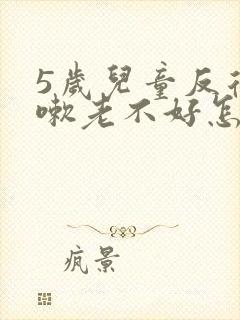 5歲兒童反
嗽老不好怎
疯景